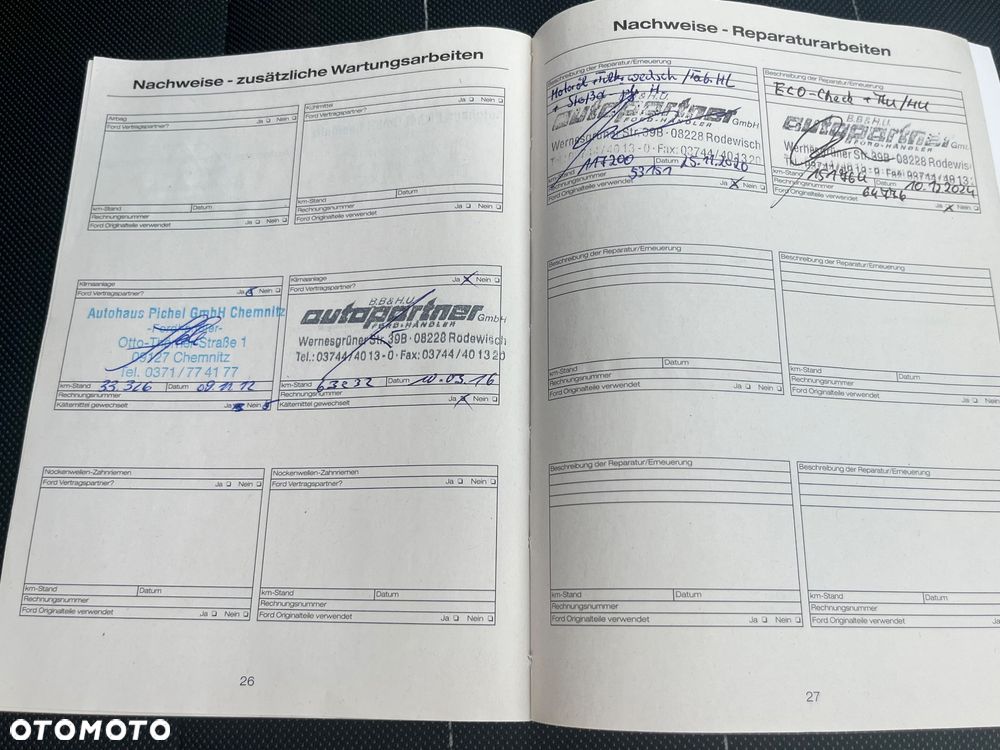 Nachweise - zusätzliche Wartungsarbeiten
Airbag
Ford Vertragspartner? Ja Nein
km-Stand Datum
Rechnungsnummer
Ford Originalteile verwendet Ja Nein
Kühlmittel
Ford Vertragspartner? Ja Nein
km-Stand Datum
Rechnungsnummer
Ford Originalteile verwendet Ja Nein
Klimaanlage
Ford Vertragspartner? Ja Nein
Autohaus Pichel GmbH Chemnitz
Straße 1
09127 Chemnitz
Tel. 0371/ 77 41 77
km-Stand 33.326 Datum 09.11.12
Rechnungsnummer
Kältemittel gewechselt Ja Nein
Klimaanlage
Ford Vertragspartner? Ja Nein
B.B.& H.U.
autopartner GmbH
FORD-HÄNDLER
Wernesgrüner Str. 39B · 08228 Rodewisch
Tel.: 03744 / 40 13 - 0 · Fax: 03744 / 40 13 20
km-Stand Datum 10.03.16
Rechnungsnummer
Kältemittel gewechselt Ja Nein
Nockenwellen-Zahnriemen
Ford Vertragspartner? Ja Nein
km-Stand Datum
Rechnungsnummer
Ford Originalteile verwendet Ja Nein
Nockenwellen-Zahnriemen
Ford Vertragspartner? Ja Nein
km-Stand Datum
Rechnungsnummer
Ford Originalteile verwendet Ja Nein
26
Nachweise - Reparaturarbeiten
Beschreibung der Reparatur/Erneuerung
Motoröl
autopartner GmbH
FORD-HÄNDLER
Wernesgrüner Str. 39B · 08228 Rodewisch
03744/ 40 13 - 0 · Fax: 03744/ 40 13 20
km-Stand 117200 Datum 25.11.2020
Rechnungsnummer 53151
Ford Originalteile verwendet Ja Nein
Beschreibung der Reparatur/Erneuerung
ECO-Check + TÜ/HU
B.B.& H.U.
autopartner GmbH
FORD-HÄNDLER
Wernesgrüner Str. 39B · 08228 Rodewisch
km-Stand Datum 10.12.2024
Rechnungsnummer
Ford Originalteile verwendet Ja Nein
Beschreibung der Reparatur/Erneuerung
km-Stand Datum
Rechnungsnummer
Ford Originalteile verwendet Ja Nein
Beschreibung der Reparatur/Erneuerung
km-Stand Datum
Rechnungsnummer
Ford Originalteile verwendet Ja Nein
Beschreibung der Reparatur/Erneuerung
km-Stand Datum
Rechnungsnummer
Ford Originalteile verwendet Ja Nein
Beschreibung der Reparatur/Erneuerung
km-Stand Datum
Rechnungsnummer
Ford Originalteile verwendet Ja
27
OTOMOTO